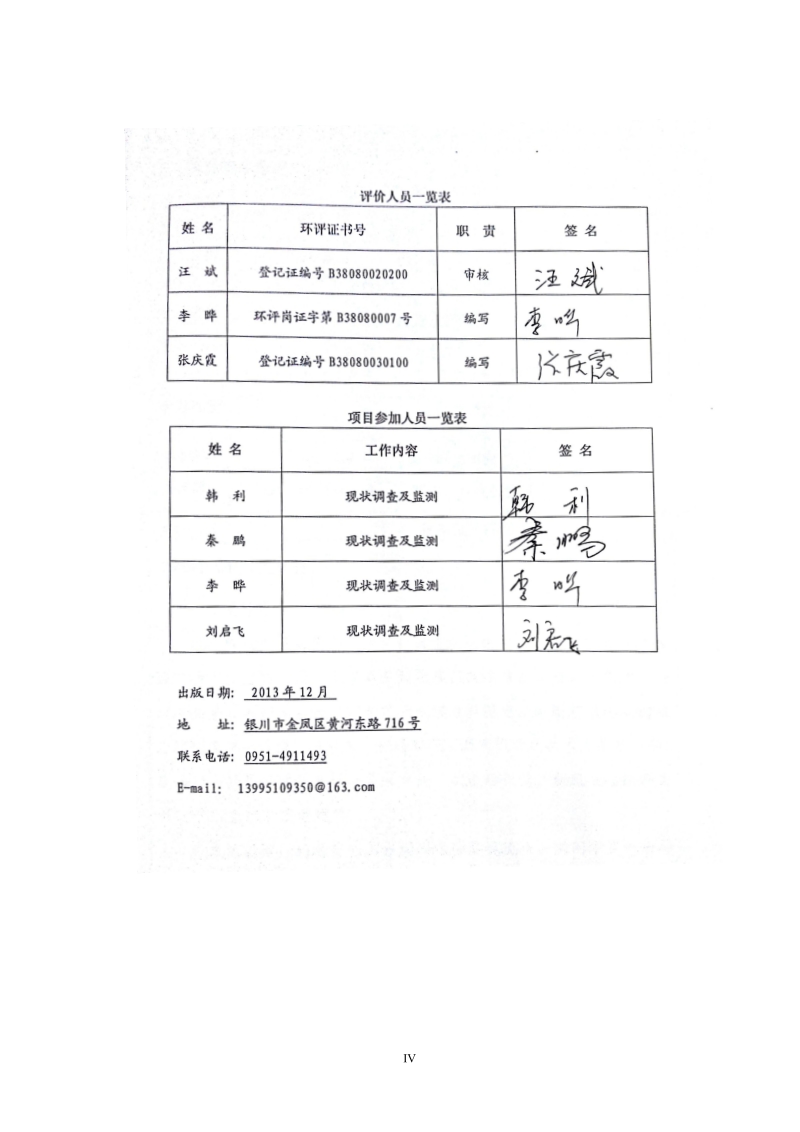 评价人员一览表
姓 名 环评证书号 职 责 签 名
汪 斌 登记证编号 B38080020200 审核 汪 斌
李 晔 环评岗证字第 B38080007 号 编写 李 晔
张庆霞 登记证编号 B38080030100 编写 张庆霞
项目参加人员一览表
姓 名 工作内容 签 名
韩 利 现状调查及监测 韩 利
秦 鹏 现状调查及监测 秦 鹏
李 晔 现状调查及监测 李 晔
刘启飞 现状调查及监测 刘启飞
出版日期: 2013 年 12 月
地 址: 银川市金凤区黄河东路 716 号
联系电话: 0951-4911493
E-mail: 13995109350@163.com
IV